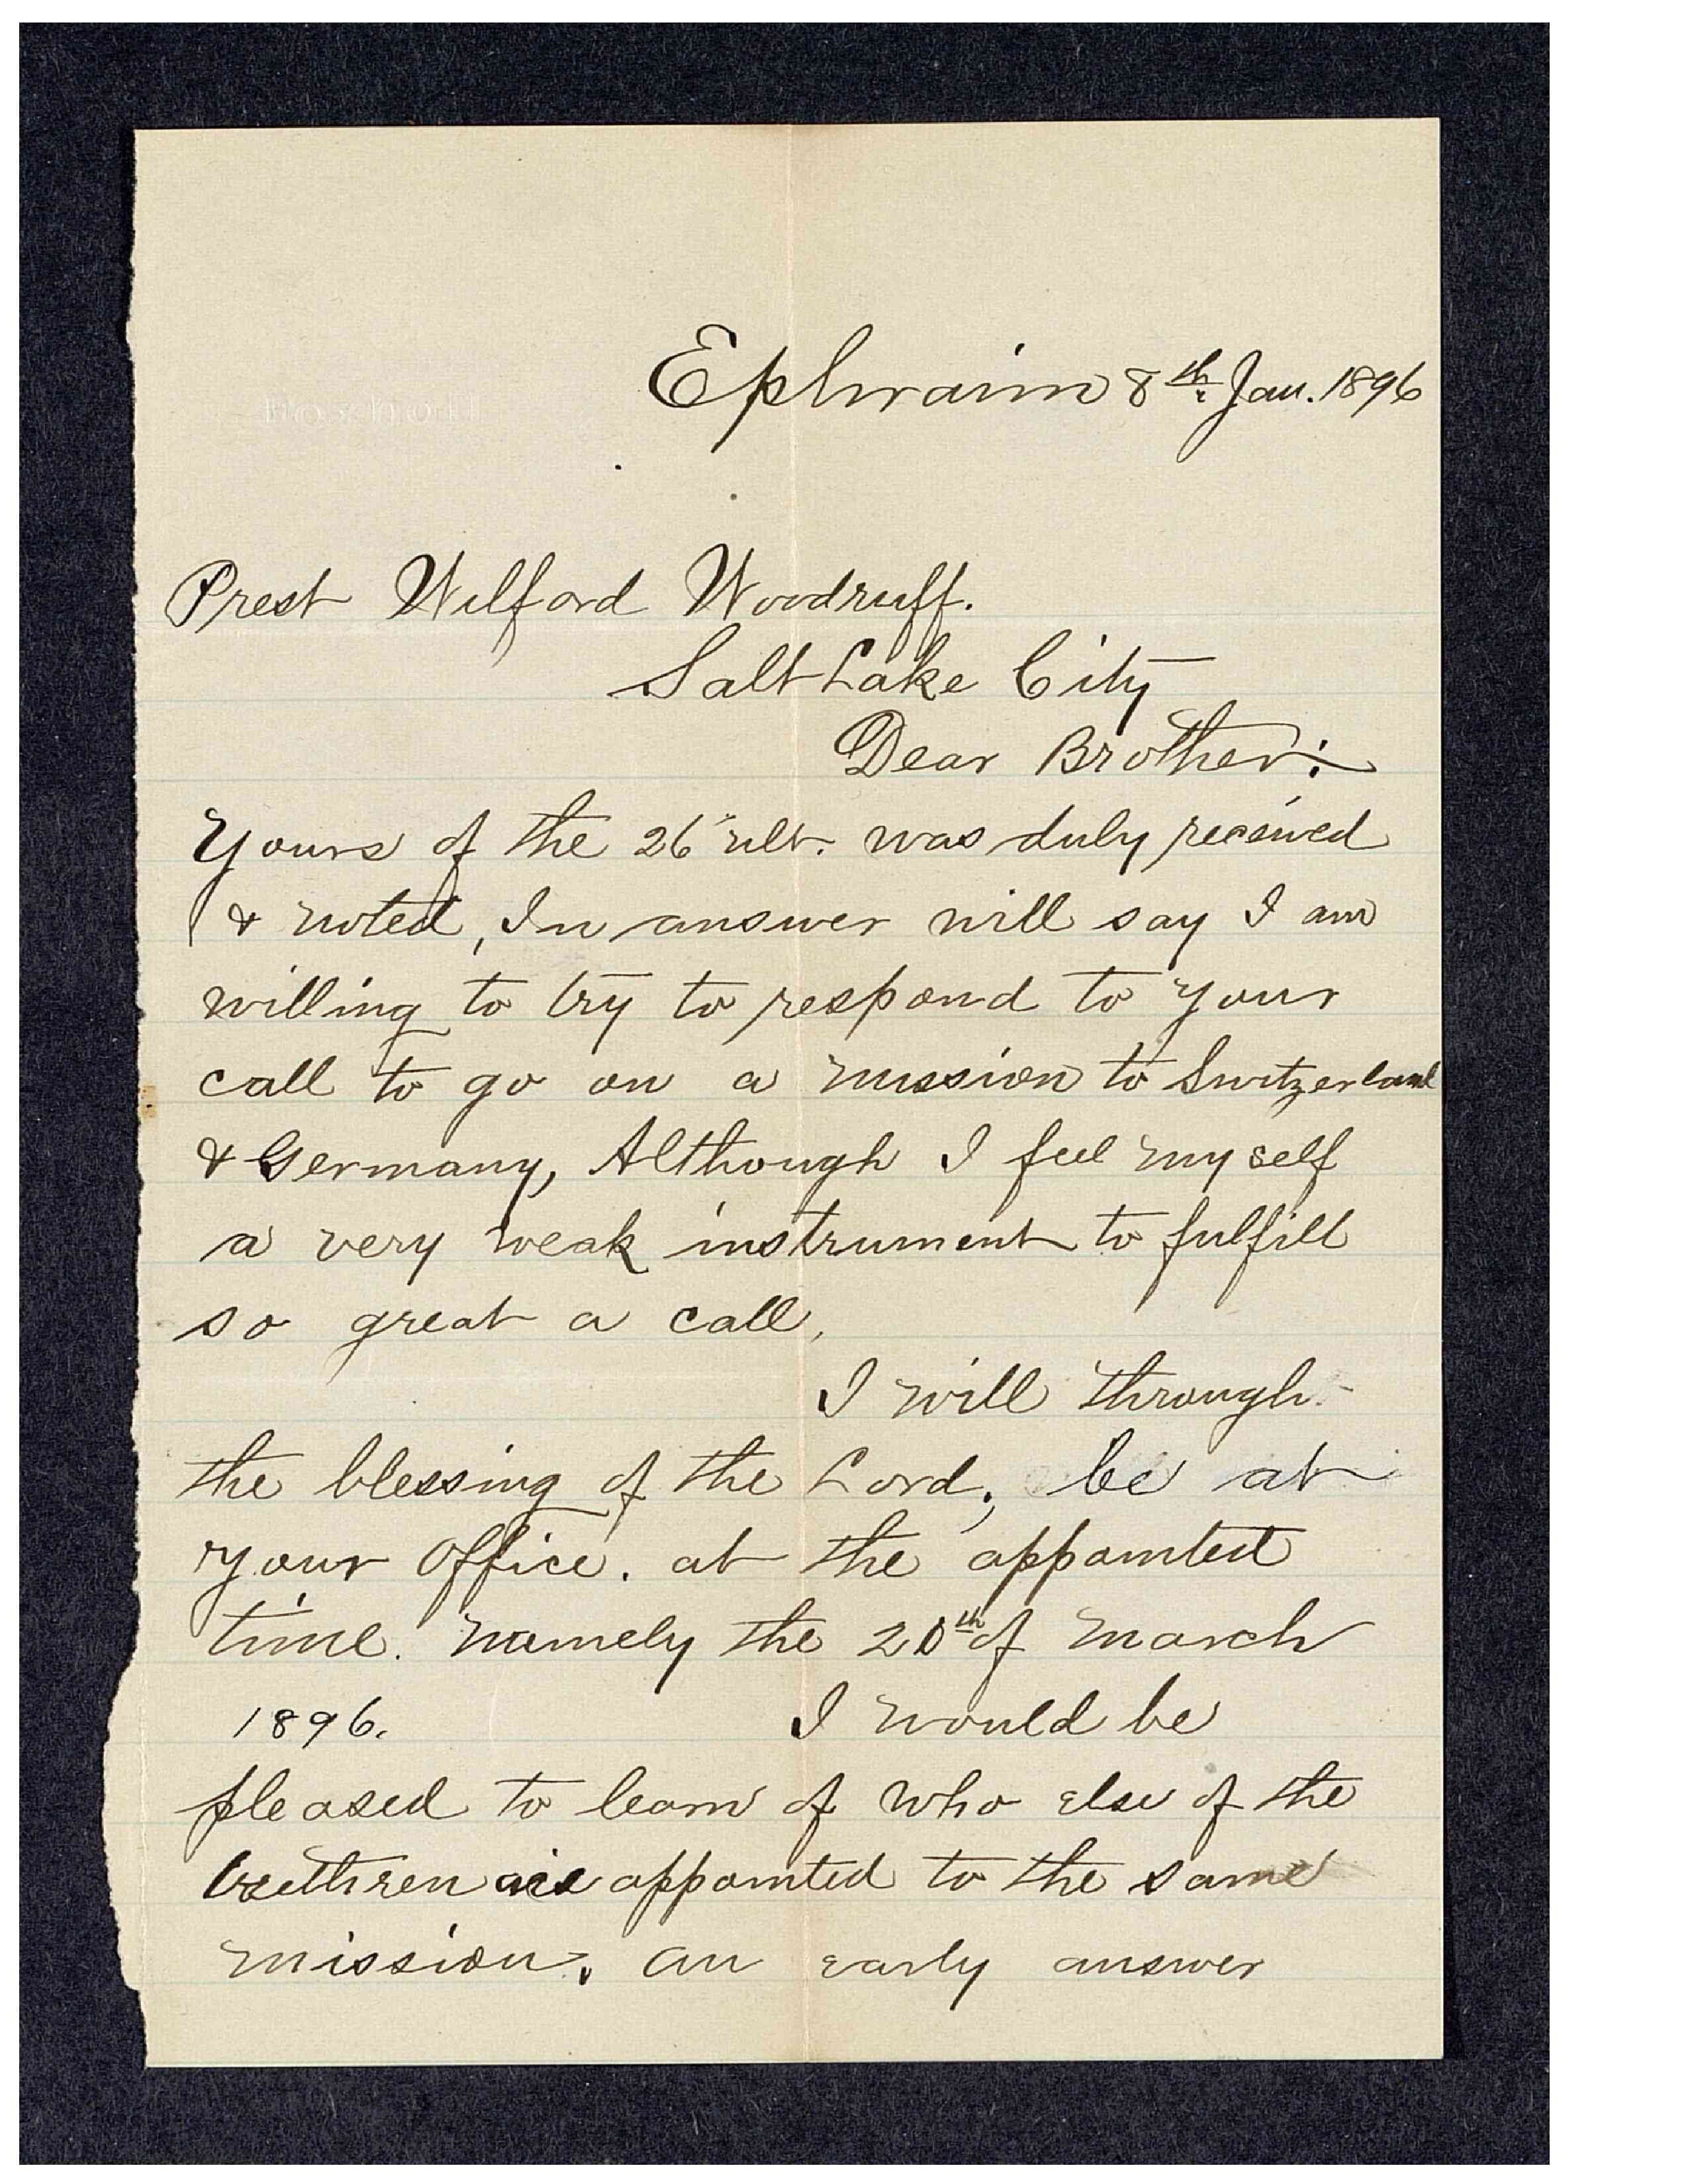 Ephraim 8th Jan. 1896
Prest Wilford Woodruff.
Salt Lake City
Dear Brother:
Yours of the 26" ult. was duly received
& noted, In answer will say I am
willing to try to respond to your
call to go on a mission to Switzerland
& Germany, Although I feel myself
a very weak instrument to fulfill
so great a call,
I will through
the blessing of the Lord; be at
your office. at the appointed
time. namely the 20th of March
1896. I would be
pleased to learn of who else of the
brethren are appointed to the same
mission. an early answer